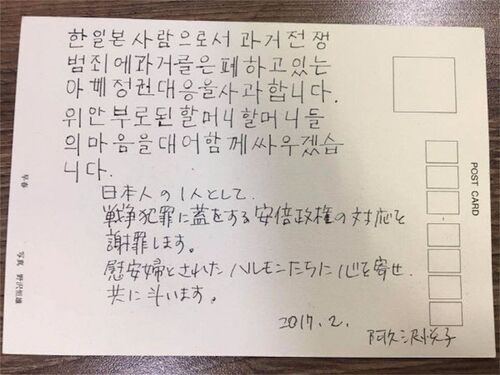 한일본사람으로서 과거전쟁
범죄에과거를은폐하고있는
아베정권대응을사과합니다.
위안부로된할머니할머니들
의마음을대어함께싸우겠습
니다.
日本人の1人として、
戦争犯罪に蓋をする安倍政権の対応を
謝罪します。
慰安婦とされたハルモニたちに心を寄せ、
共に斗います。
2017.2.
阿久沢悦子
POST CARD
早春
写真 野沢恒雄